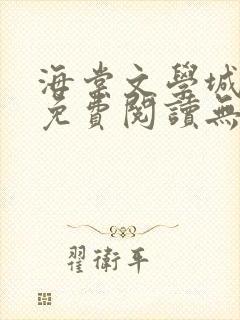 海棠文學城
免費閱讀無
翟衛平